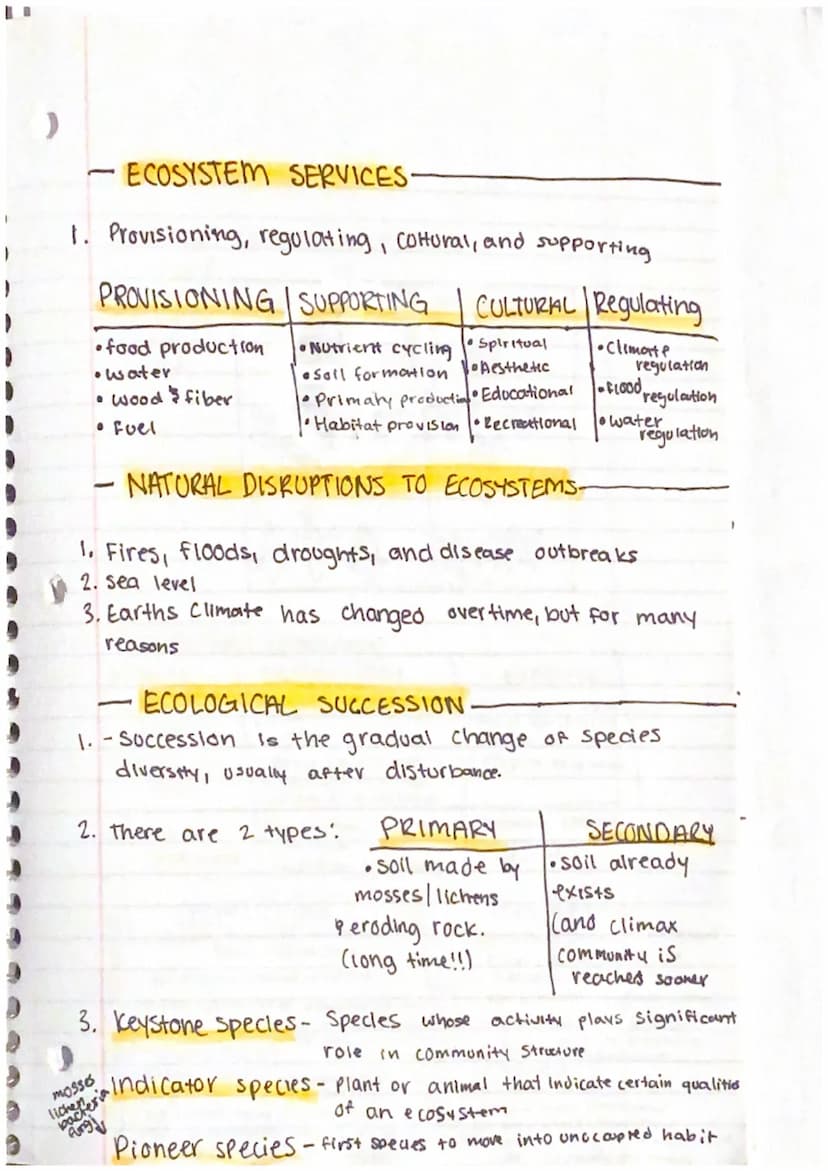 - ECOSYSTEM SERVICES
1. Provisioning, regulating, cultural, and supporting
PROVISIONING | SUPPORTING | CULTURAL | Regulating
• food production
• water
• wood & fiber
• fuel
• Nutrient cycling
• Soil formation
• Primary production
• Habitat provision
• Spiritual
• Aesthetic
• Educational
• Recreational
• Climate
regulation
• flood
regulation
• water
regulation
- NATURAL DISRUPTIONS TO ECOSYSTEMS
1. Fires, floods, droughts, and disease outbreaks
2. sea level
3. Earths Climate has changed overtime, but for many
reasons
- ECOLOGICAL SUCCESSION
1. - Succession is the gradual change of species
diversity, usually after disturbance.
2. There are 2 types:
PRIMARY
• soil made by
mosses/lichens
& eroding rock.
(long time!!)
SECONDARY
• soil already
exists
(and climax
community is
reached sooner
3. Keystone species - Species whose activity plays significant
role in community structure
Indicator species - Plant or animal that indicate certain qualities
of an ecosystem
mosses
lichen
bacteria
fungi
Pioneer species - first species to move into unoccupied habit